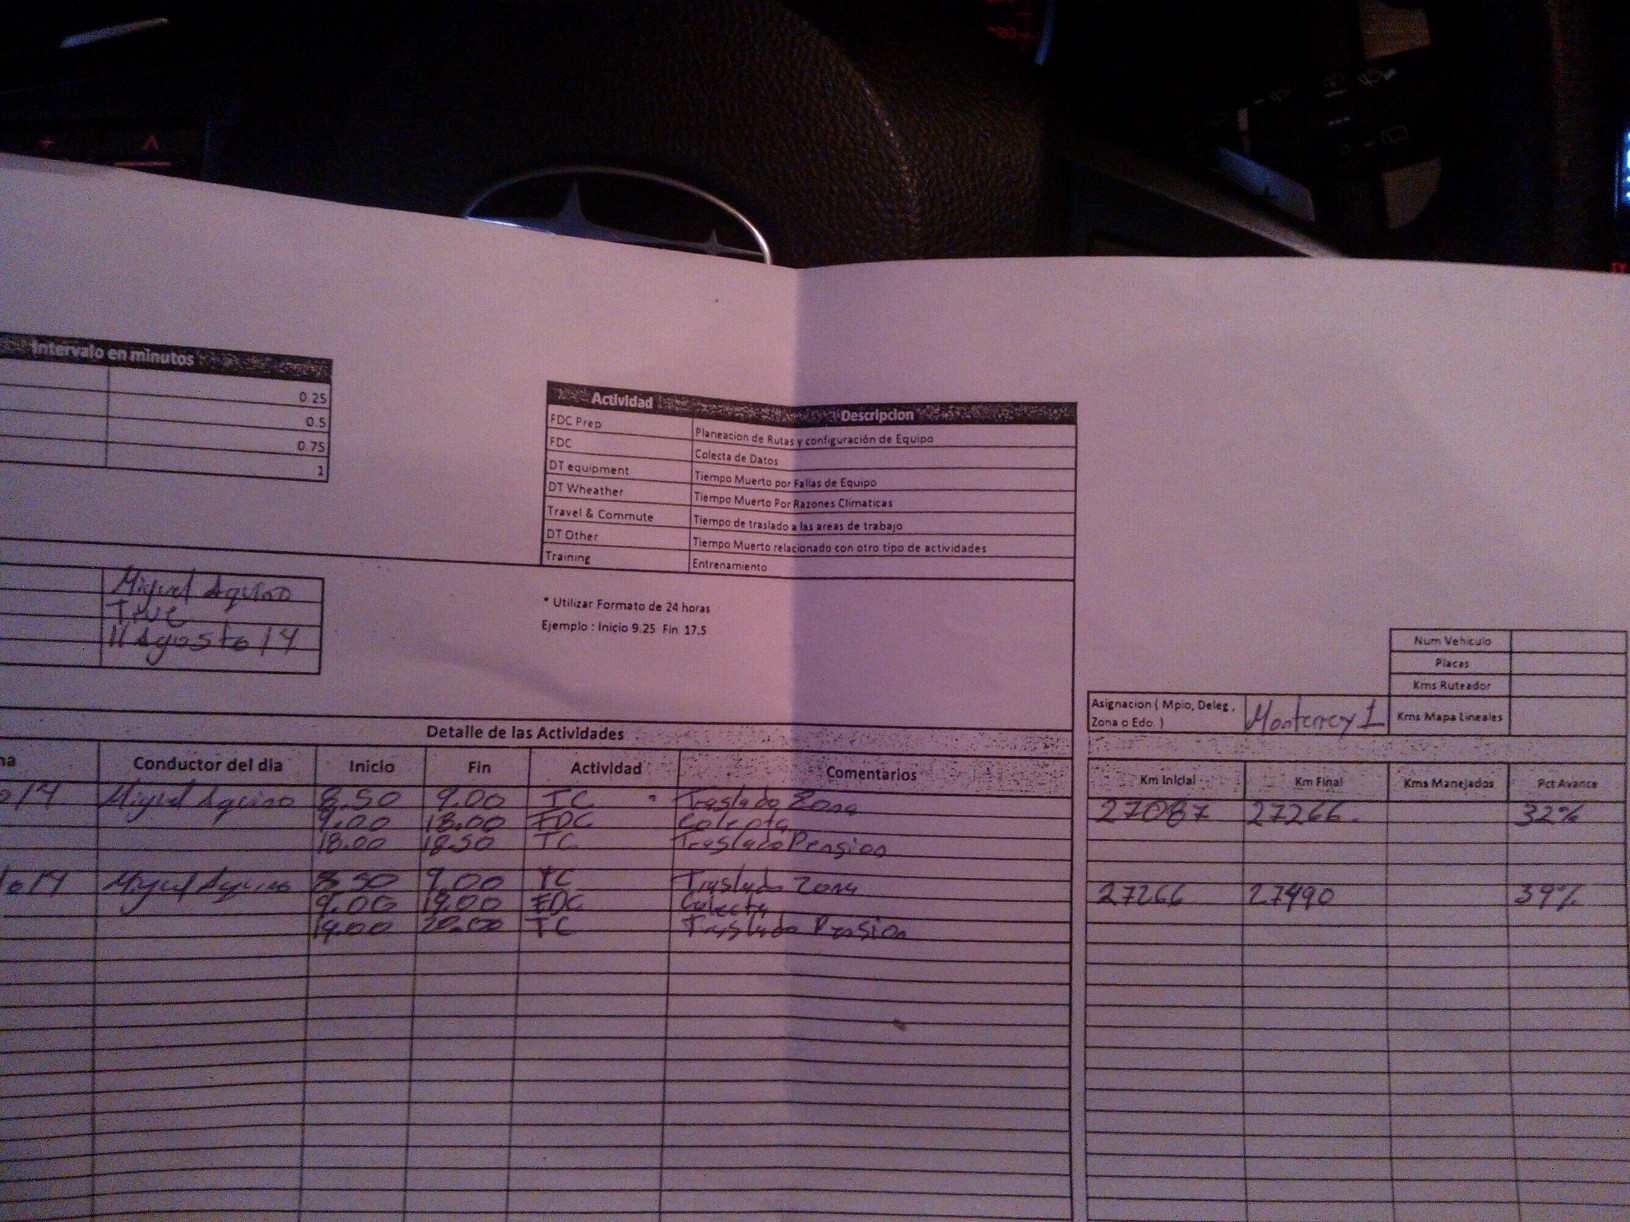 Intervalo en minutos
0.25
0.5
0.75
1
Actividad Descripcion
FDC Prep Planeacion de Rutas y configuración de Equipo
FDC Colecta de Datos
DT equipment Tiempo Muerto por Fallas de Equipo
DT Wheather Tiempo Muerto Por Razones Climaticas
Travel & Commute Tiempo de traslado a las areas de trabajo
DT Other Tiempo Muerto relacionado con otro tipo de actividades
Training Entrenamiento
Miguel Aquino
11 Agosto 14
* Utilizar Formato de 24 horas
Ejemplo : Inicio 9.25 Fin 17.5
Num Vehiculo
Placas
Kms Ruteador
Kms Mapa Lineales
Asignacion ( Mpio, Deleg ,
Zona o Edo. )
Monterrey 1
Detalle de las Actividades
Conductor del dia Inicio Fin Actividad Comentarios Km Inicial Km Final Kms Manejados Pct Avance
Miguel Aquino 8.50 9.00 TC Traslado Zona 27087 27266 32%
9.00 18.00 FDC Colecta
18.00 18.50 TC Traslado Pension
Miguel Aquino 8.50 9.00 TC Traslado Zona 27266 27490 39%
9.00 19.00 FDC Colecta
19.00 20.00 TC Traslado Pension